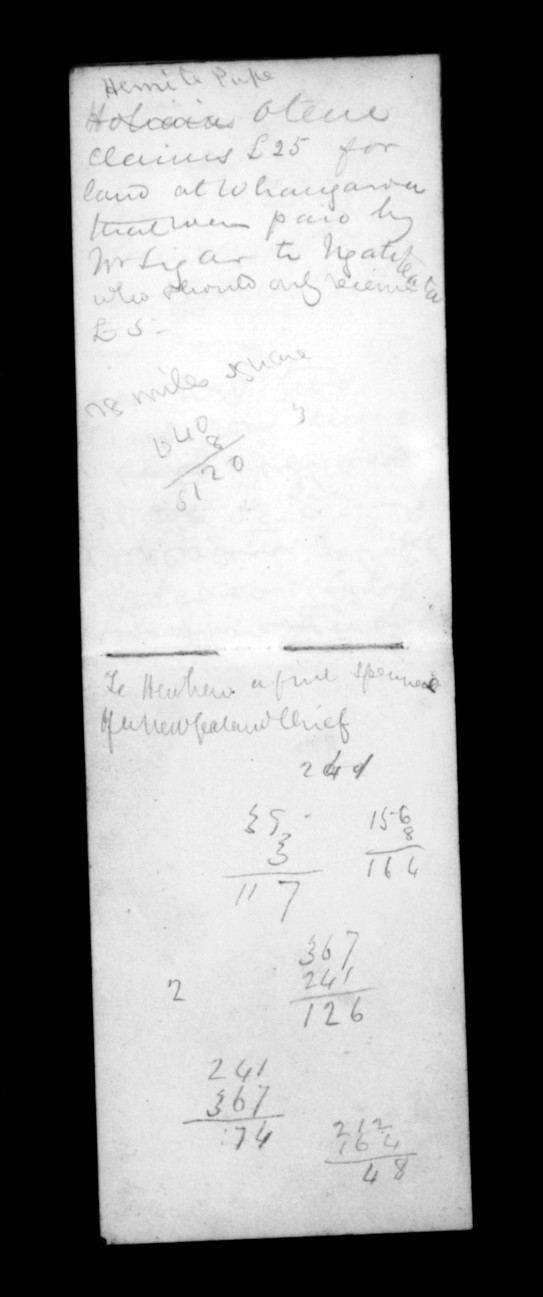 Otene
claims £25 for
land at Whangarei
that was paid by
Mr Ligar to Ngati
who should only receive
£5-
78 miles square
640
8
5120
3
Te Heuheu a fine specimen
of a New Zealand Chief
241
39
3
117
156
8
164
367
241
126
2
241
367
74
212
164
48